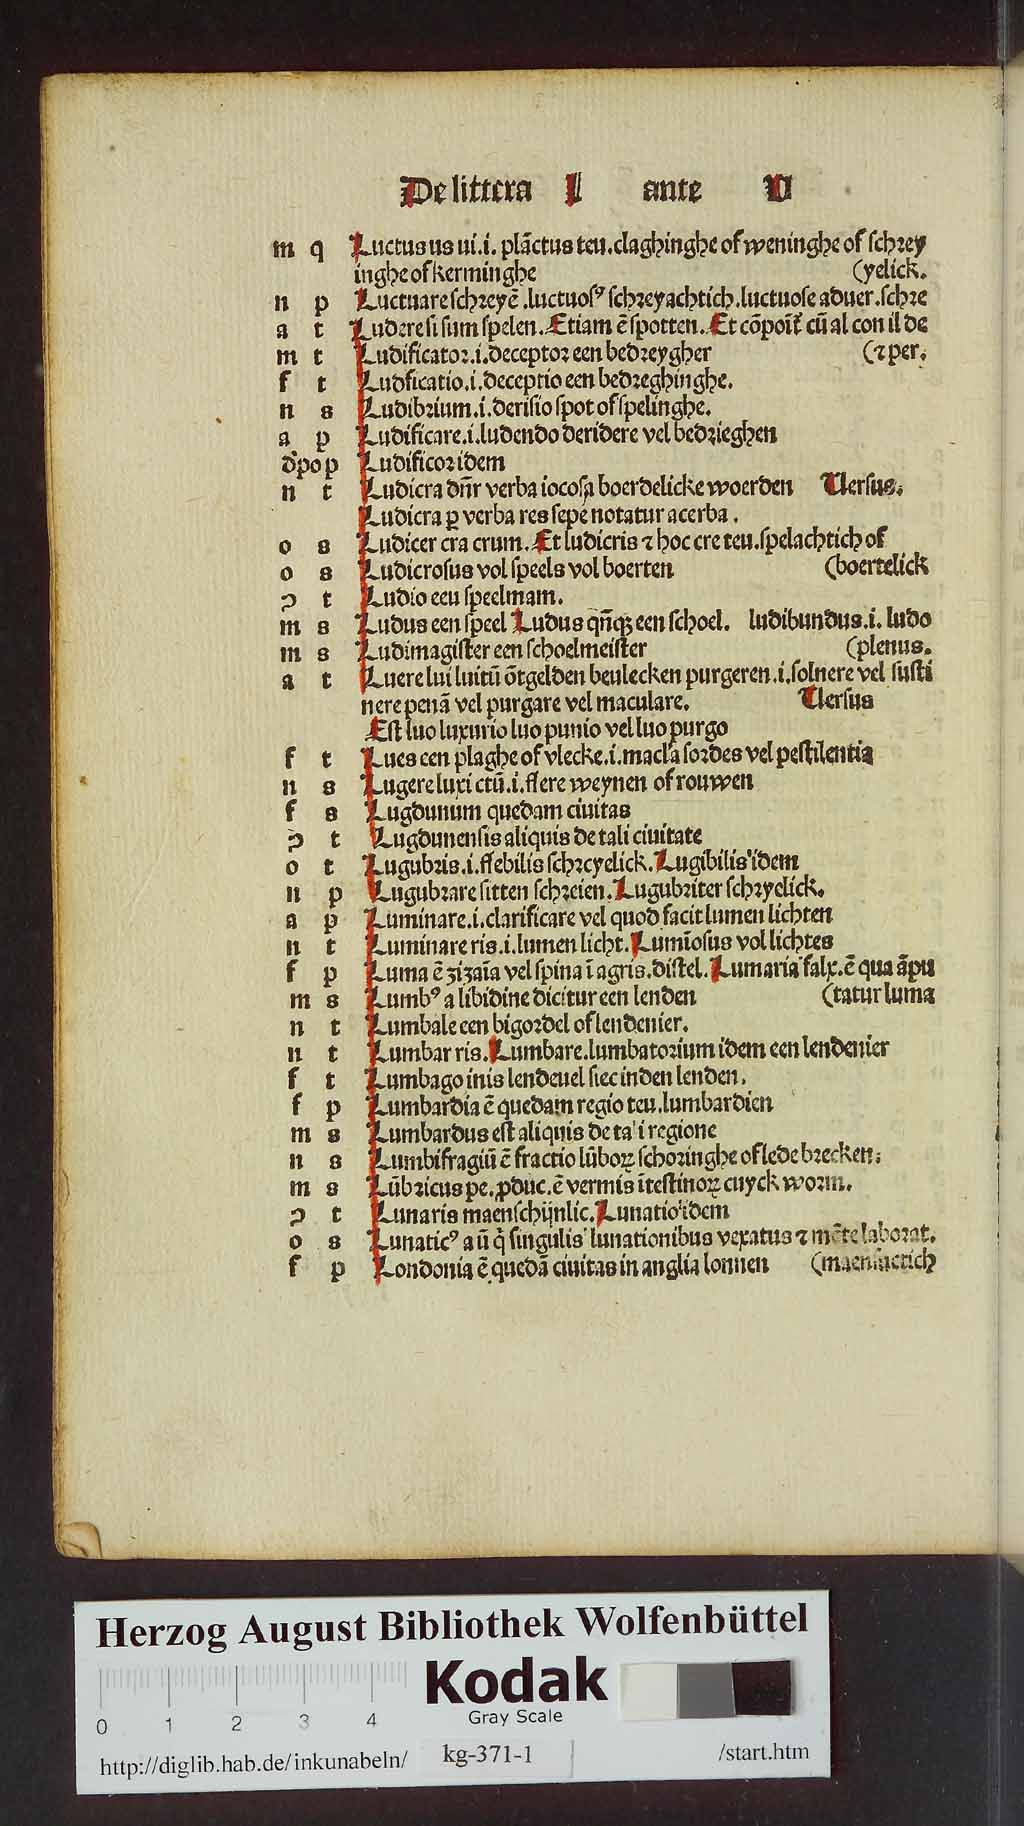 De littera L ante U
m q Luctus us ui.i. plāctus teu.claghinghe of weninghe of schrey
inghe of kerminghe (yelick.
n p Luctuare schreyē.luctuosꝰ schreyachtich.luctuose aduer.schre
a t Ludere si sum spelen.Etiam ē spotten.Et cōpoit᷑ cū al con il de
m t Ludificator.i.deceptor een bedreygher (⁊ per.
f t Ludficatio.i.deceptio een bedreghinghe.
n s Ludibrium.i.derisio spot of spelinghe.
a p Ludificare.i.ludendo deridere vel bedrieghen
d'po p Ludificor idem
n t Ludicra dn̄r verba iocosa boerdelicke woerden Uersus.
Ludicra ꝑ verba res sepe notatur acerba.
o s Ludicer cra crum.Et ludicris ⁊ hoc cre teu.spelachtich of
o s Ludicrosus vol speels vol boerten (boertelick
ↄ t Ludio eeu speelmam.
m s Ludus een speel Ludus qn̄qꝫ een schoel. ludibundus.i. ludo
m s Ludimagister een schoelmeister (plenus.
a t Luere lui luitū ōtgelden beulecken purgeren.i.solnere vel susti
nere penā vel purgare vel maculare. Uersus
Est luo luxurio luo punio vel luo purgo
f t Lues een plaghe of vlecke.i.macl'a sordes vel pestilentia
n s Lugere luxi ctū.i.flere weynen of rouwen
f s Lugdunum quedam ciuitas
ↄ t Lugdunensis aliquis de tali ciuitate
o t Lugubris.i.flebilis schrcyelick.Lugibilis idem
n p Lugubrare sitten schreien.Lugubriter schryelick.
a p Luminare.i.clarificare vel quod facit lumen lichten
n t Luminare ris.i.lumen licht.Lumīosus vol lichtes
f p Luma ē zizaīa vel spina ī agris.distel.Lumaria falx.ē qua āpu
m s Lumbꝰ a libidine dicitur een lenden (tatur luma
n t Lumbale een bigordel of lendenier.
n t Lumbar ris.Lumbare.lumbatorium idem een lendenier
f t Lumbago inis lendeuel siec inden lenden.
f p Lumbardia ē quedam regio teu.lumbardien
m s Lumbardus est aliquis de ta'i regione
n s Lumbifragiū ē fractio lūboꝝ schoringhe of lede brecken.
m s Lūbricus pe.ꝓduc.ē vermis ītestinoꝝ cuyck worm.
ↄ t Lunaris maenschijnlic.Lunatio idem
o s Lunaticꝰ aū q̇ singulis lunationibus vexatus ⁊ mēte laborat.
f p Londonia ē quedā ciuitas in anglia lonnen (maensuctich
Herzog August Bibliothek Wolfenbüttel
0 1 2 3 4
Kodak
Gray Scale
http://diglib.hab.de/inkunabeln/ kg-371-1 /start.htm